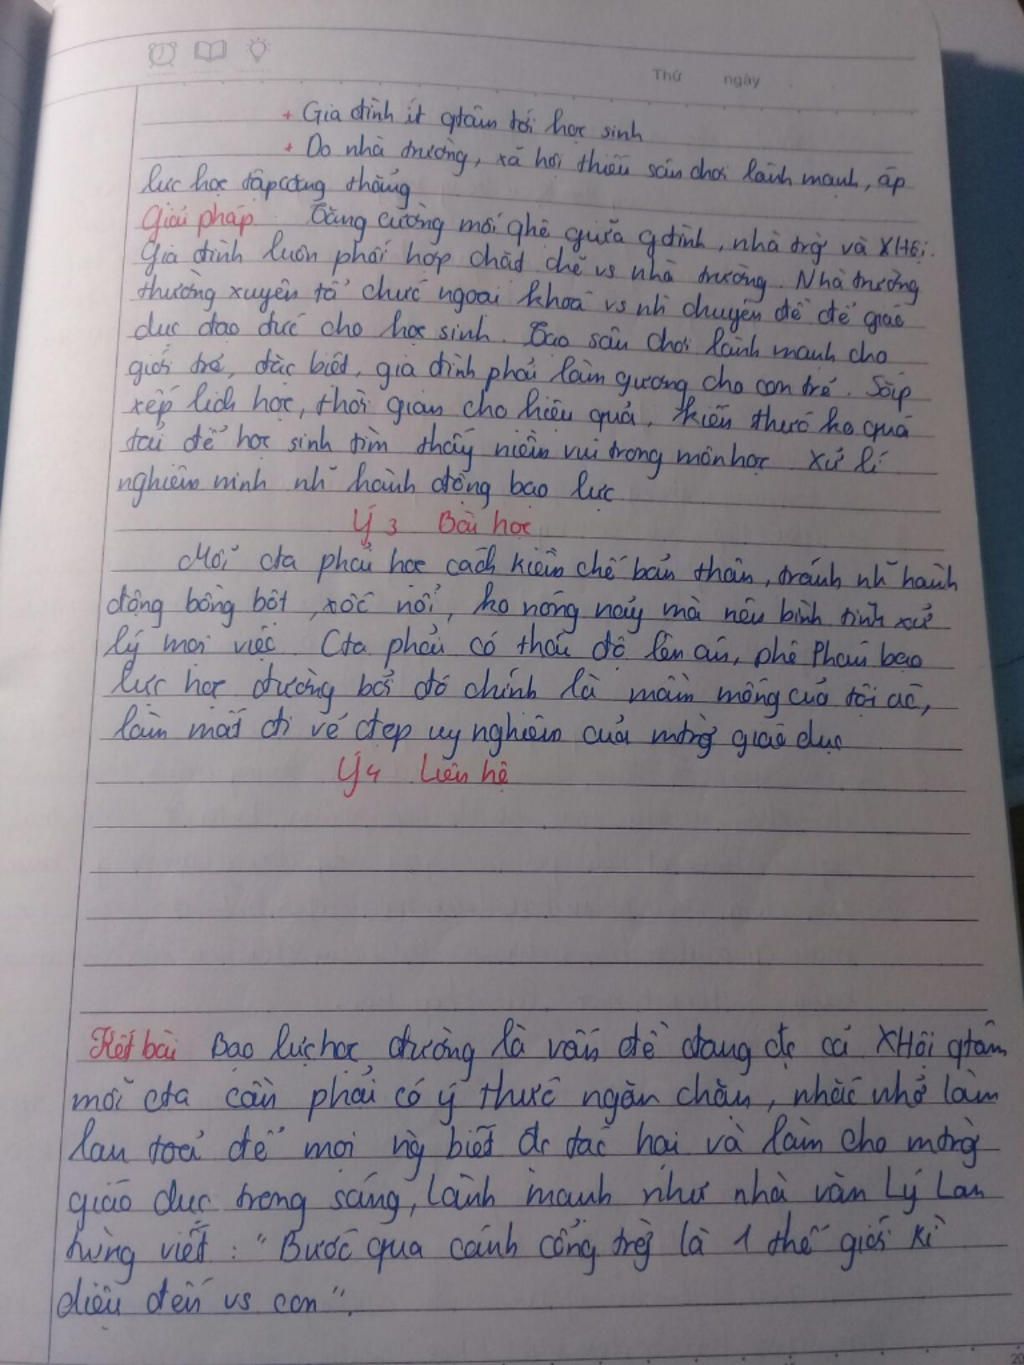 Thứ ngày
+ Gia đình ít qtâm tới học sinh
+ Do nhà trường, xã hội thiếu sân chơi lành mạnh, áp
lực học tập căng thẳng
Giải pháp Tăng cường mối qhệ giữa gđình, nhà trg và XHội.
Gia đình luôn phối hợp chặt chẽ vs nhà trường. Nhà trường
thường xuyên tổ chức ngoại khoá vs nh~ chuyên đề để giáo
dục đạo đức cho học sinh. Tạo sân chơi lành mạnh cho
giới trẻ, đặc biệt, gia đình phải làm gương cho con trẻ. Sắp
xếp lịch học, thời gian cho hiệu quả, kiến thức ko quá
tải để học sinh tìm thấy niềm vui trong môn học Xử lí
nghiêm minh nh~ hành động bạo lực
Ý 3 Bài học
Mỗi cta phải học cách kiềm chế bản thân, tránh nh~ hành
động bồng bột, xốc nổi, ko nóng nảy mà nên bình tĩnh xử
lý mọi việc. Cta phải có thái độ lên án, phê phán bạo
lực học đường bởi đó chính là mầm mống của tội ác,
làm mất đi vẻ đẹp uy nghiêm của mtrg giáo dục
Ý 4 Liên hệ
Kết bài Bạo lực học đường là vấn đề đang đc cả XHội qtâm
mỗi cta cần phải có ý thức ngăn chặn, nhắc nhở làm
lan toả để mọi ng biết đc tác hại và làm cho mtrg
giáo dục trong sáng, lành mạnh như nhà văn Lý Lan
từng viết: "Bước qua cánh cổng trg là 1 thế giới kì
diệu đến vs con".